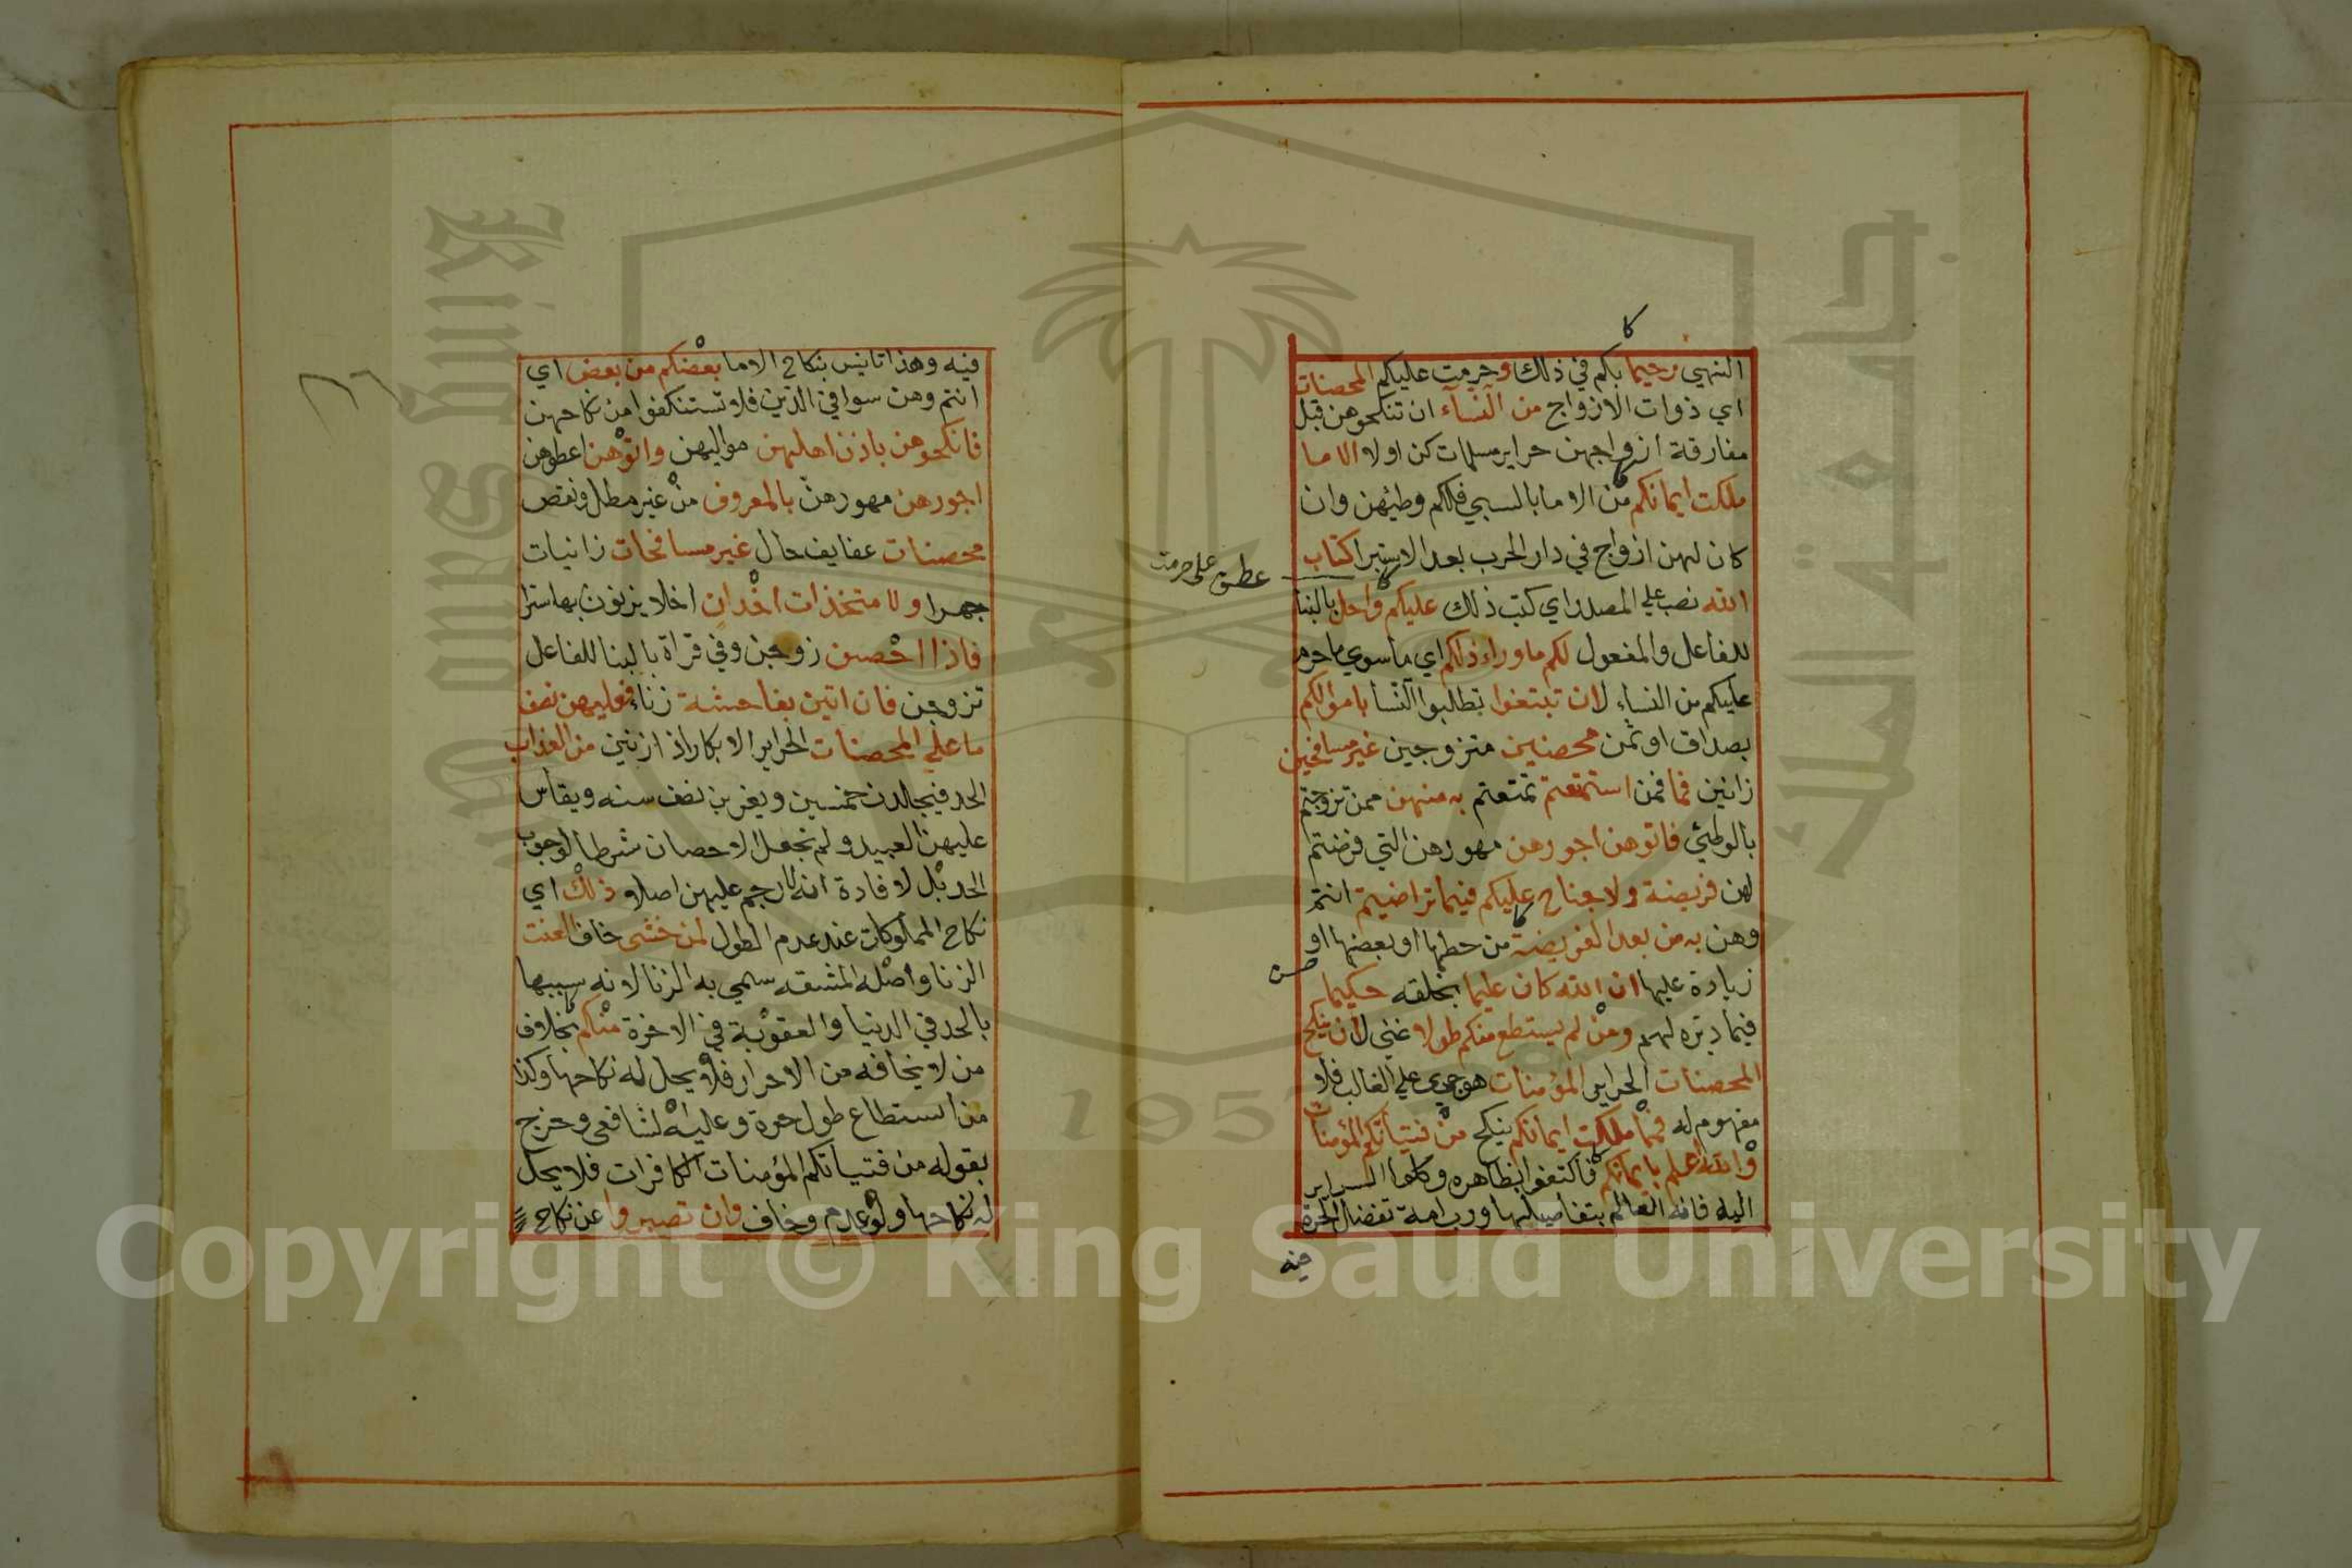 النهي رحيما بكم في ذلك وحرمت عليكم المحصنات
اي ذوات الازواج من النسآء ان تنكحوهن قبل
مفارقة ازواجهن حراير مسلمات كن اولا الا ما
ملكت ايمانكم من الاما بالسبي فلكم وطيهن وان
كان لهن ازواج في دار الحرب بعد الاستبرا كتاب
الله نصب علي المصدر اي كتب ذلك عليكم واحل بالبنا
للفاعل والمفعول لكم ماوراء ذلكم اي ماسوي ماحرم
عليكم من النساء لان تبتغوا تطلبوا النسا باموالكم
بصداق او ثمن محصنين متزوجين غير مسافحين
زانين فما فمن استمتعتم تمتعتم به منهن ممن تزوجتم
بالوطئي فاتوهن اجورهن مهورهن التي فرضتم
لهن فريضة ولا جناح عليكم فيما تراضيتم انتم
وهن به من بعد الفريضة من حطها او بعضها او
زيادة عليها ان الله كان عليما بخلقه حكيما
فيما دبره لهم ومن لم يستطع منكم طولا غني لان ينكح
المحصنات الحراير المؤمنات هو جري علي الغالب فلا
مفهوم له فمما ملكت ايمانكم ينكح من فتياتكم المؤمنات
والله اعلم بايمانكم فاكتفوا بظاهره وكلوا السراير
اليه فانه العالم بتفاصيلها ورب امة تفضل الحرة
فيه
عطف علي حرمت
فيه وهذا تانيس بنكاح الاما بعضكم من بعض اي
انتم وهن سوا في الدين فلا تستنكفوا من نكاحهن
فانكحوهن باذن اهلهن مواليهن واتوهن اعطوهن
اجورهن مهورهن بالمعروف من غير مطل ونقص
محصنات عفايف حال غير مسافحات زانيات
جهرا ولا متخذات اخدان اخلا يزنون بها سترا
فاذا احصن زوجن وفي قراة بالبنا للفاعل
تزوجن فان اتين بفاحشة زناء فعليهن نصف
ما علي المحصنات الحراير الابكار اذا زنين من العذاب
الحد فيجلدن خمسين ويغربن نصف سنه ويقاس
عليهن العبيد ولم نجعل الاحصان شرطا لوجوب
الحد بل لافادة انه لا رجم عليهن اصلا وذلك اي
نكاح المملوكات عند عدم الطول لمن خشي خاف العنت
الزنا واصله المشقه سمي به الزنا لانه سببها
بالحد في الدنيا والعقوبة في الاخرة منكم بخلاف
من لا يخافه من الاحرار فلا يحل له نكاحها وكذا
من استطاع طول حرة وعليه الشافعي وخرج
بقوله من فتياتكم المؤمنات الكافرات فلا يحل
له نكاحها ولو عدم وخاف وان تصبروا عن نكاح
Copyright © King Saud University
King Saud
1957